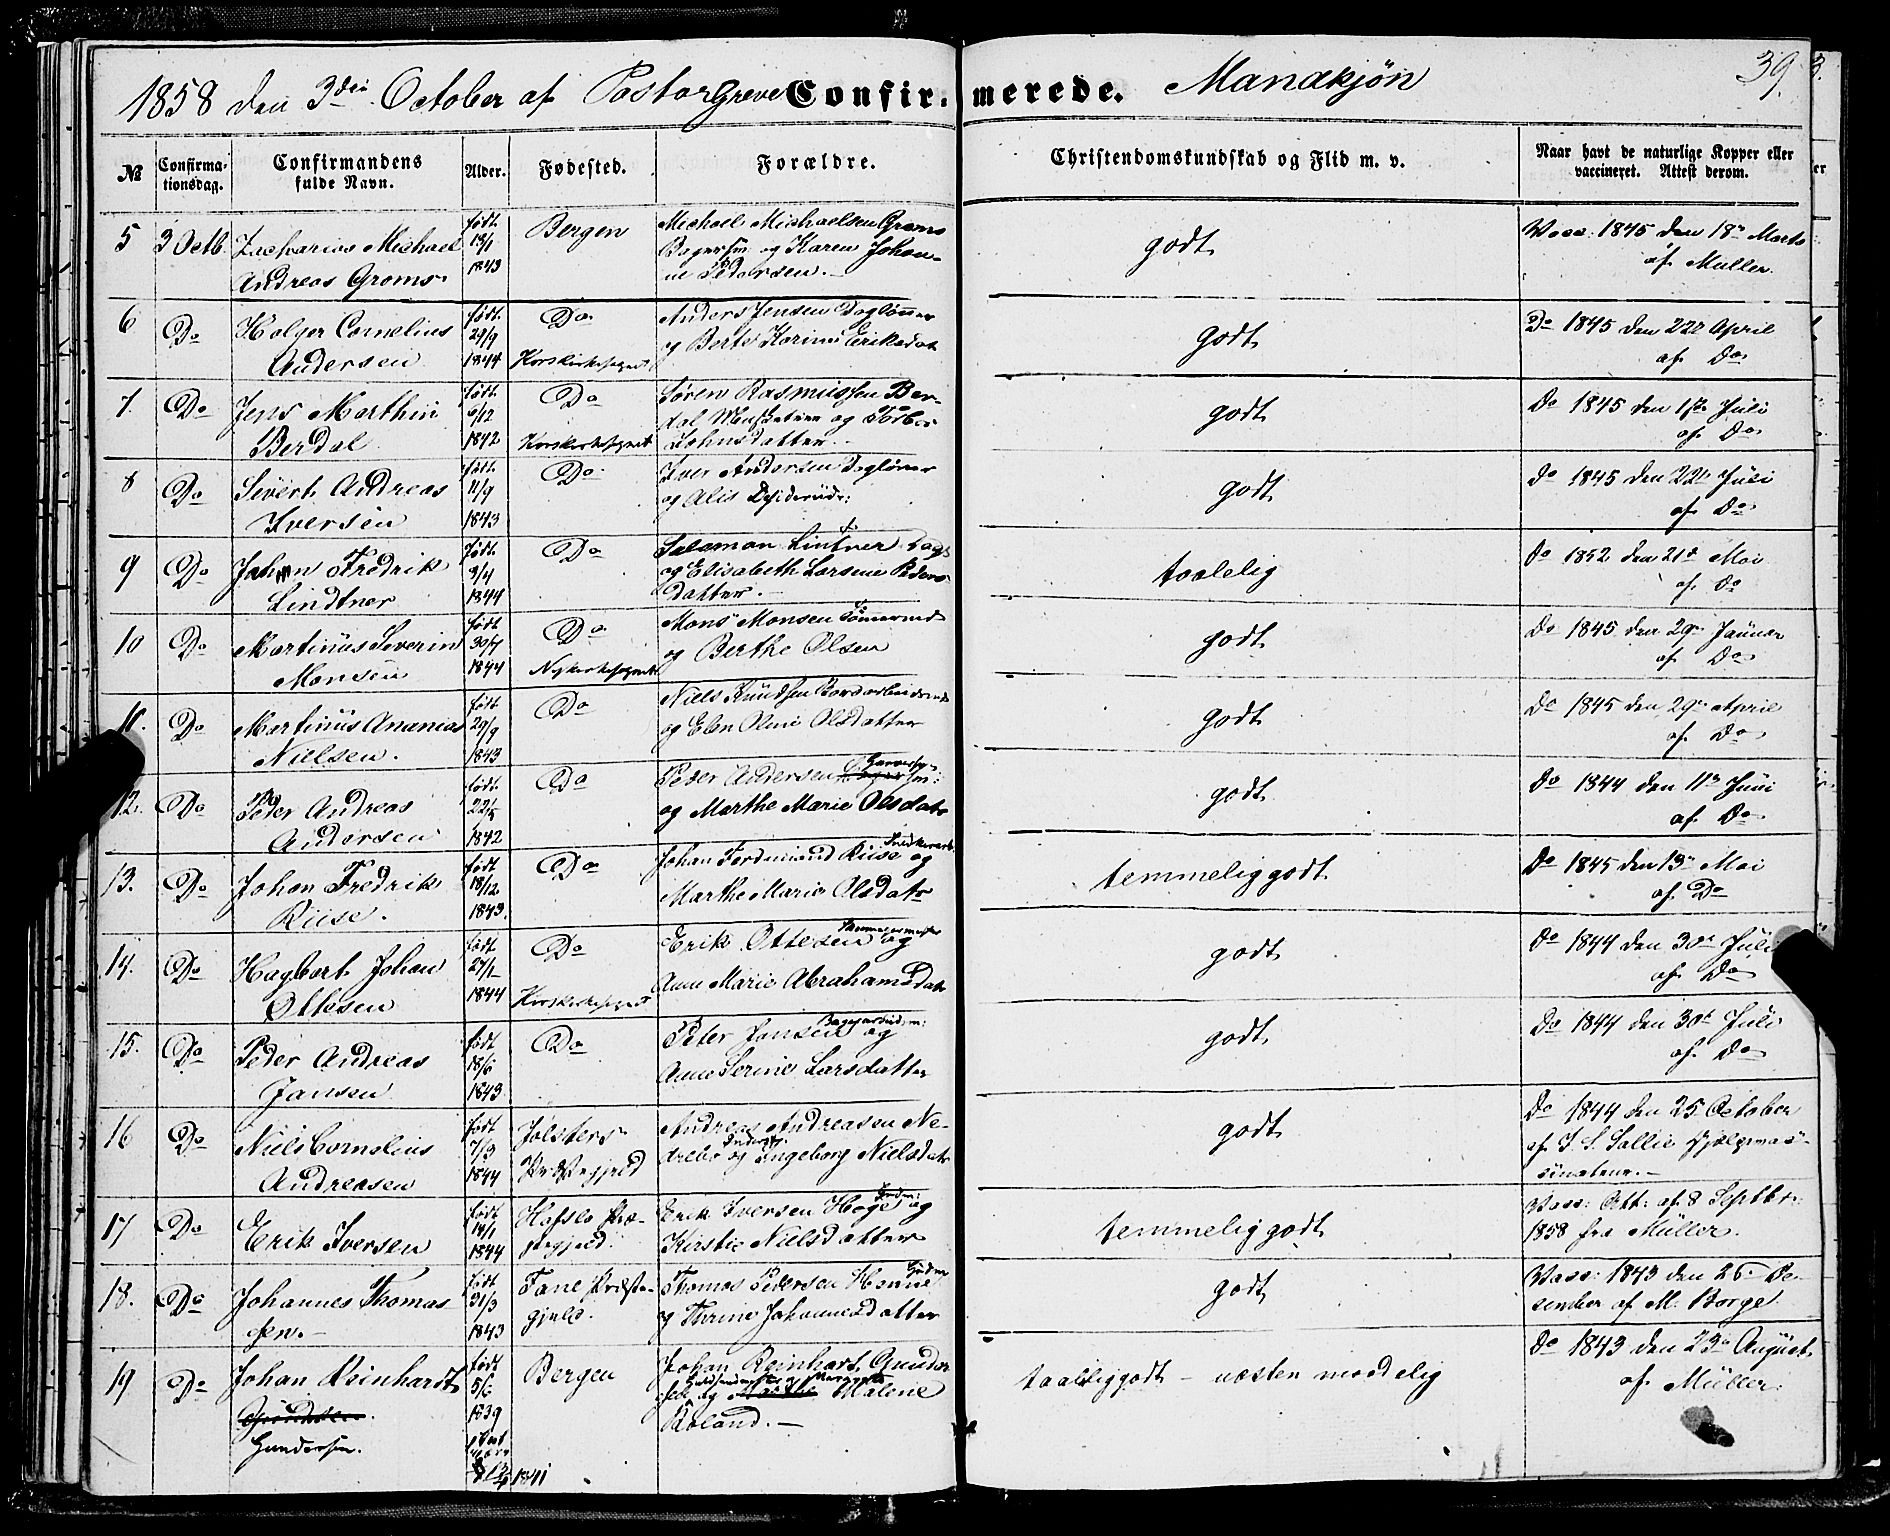 39.
1858 den 3die October af Pastor Greve Confirmerede. Mandkjøn
№ Confirmationsdag. Confirmandens fulde Navn. Alder. Fødested. Forældre. Christendomskundskab og Flid m. v. Naar havt de naturlige Kopper eller vaccineret. Attest derom.
5 3 Octb. Zacharias Michael født Bergen Michael Michaelsen Groms godt Vacc: 1845 den 18de Marts
Andreas Groms 1843 og Karen Johanne Pedersen. af Müller.
6 Do Holger Cornelius født 29/9 Do Anders Jensen Daglønner godt Do 1845 den 22de April
Andersen 1844 Korskirkesognet og Berte Karine Eriksdatr af Do
7. Do Jens Marthin født 6/12 Do Søren Rasmussen Berdal godt Do 1845 den 1ste Juli
Berdal 1842 Korskirkesognet og Johnsdatter. af Do
8 Do Sivert Andreas født 11/9 Do Iver Andersen Dagløner godt Do 1845 den 22de Juli
Iversen 1843 og Alis af Do
9 Do Johan Fredrik født 3/4 Do Salamon Lintner taalelig Do 1852 den 21de Mai
Lindtner 1844 og Elisabeth Larsene Pedersdatter. af Do
10 Do Martinus Severin født 30/7 Do Mons Monsen Tømermd godt Do 1845 den 29de Januar
Monsen 1844 Nykirkesognet og Berthe Olsen af Do
11. Do Martinus Ananias født 29/9 Do Niels Knudsen godt Do 1845 den 29de April
Nielsen. 1843 og Elen Oline Olsdatter af Do
12. Do Peder Andreas født 22/5 Do Peder Andersen godt Do 1844 den 11de Juni
Andersen 1842 og Marthe Marie Olsdatr af Do
13. Do Johan Fredrik født 18/12 Do Johan Ferdinand Riise og temmelig godt Do 1845 den 13de Mai
Riise. 1843. Marthe Marie Olsdatr af Do
14. Do Hagbart Johan født 27/1 Do Erik Ottesen og godt Do 1844 den 30te Juli
Ottesen 1844 Korskirkesognet Anne Marie Abrahamsdatr af Do
15. Do Peder Andreas født 18/6 Do Peter Jansen og godt Do 1844 den 30te Juli
Jansen 1843 Anne Serine Larsdatter af Do
16 Do Niels Cornelius født 7/3 Jølsters Andreas Andreasen Nedrebø godt Do 1844 den 25 October
Andreasen 1844 Præstegjeld og Ingeborg Nielsdatr af J. S. Sallie
17 Do Erik Iversen født 14/1 Hafslo Præstegjeld. Erik Iversen Hoge og temmelig godt Vacc: Att: af 8 Septbr:
1844 Kirstie Nielsdatter 1858 fra Müller.
18. Do Johannes Thomas født 31/3 Fane Præste- Thomas Pedersen godt Vacc: 1843 den 26. De-
sen. 1843 gjeld. og Thrine Johannesdatter cember af M. Borge
19 Do Johan Reinhardt født 5/6 Bergen Johan Reinhart Gunder- taaleliggodt – næsten maadelig Do 1843 den 23de August
Gundersen. 1839 sen og Malene af Müller.
Roland.
1841